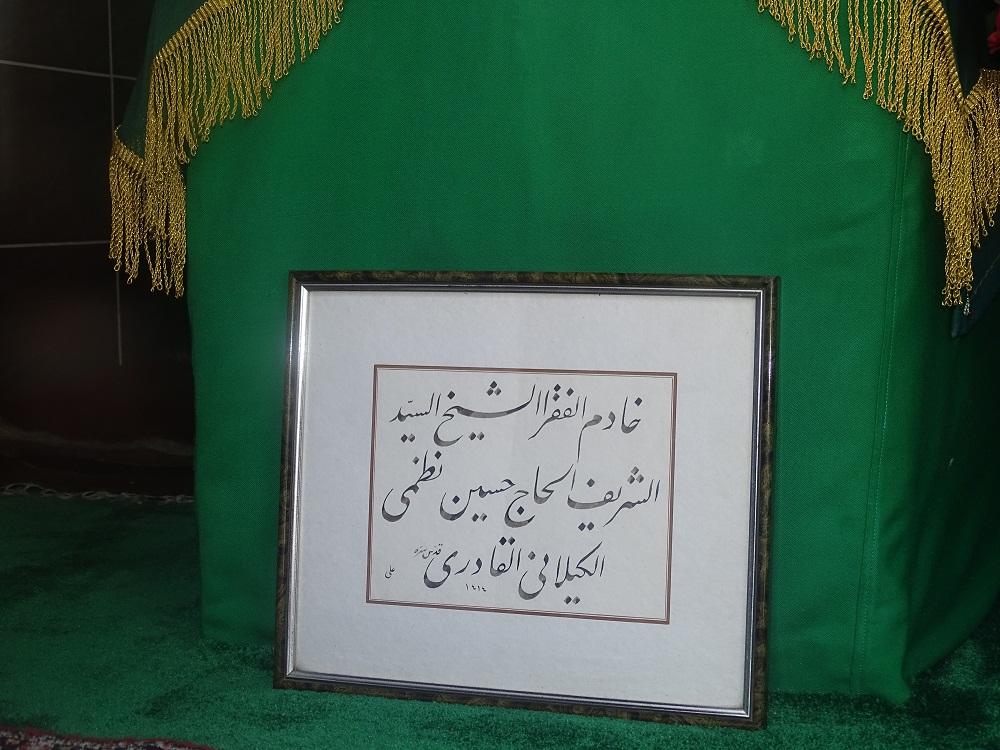 خادم الفقرا الشيخ السيّد
الشريف الحاج حسين نظمى
الكيلانى القادرى قدس سره
على ١٤١٤